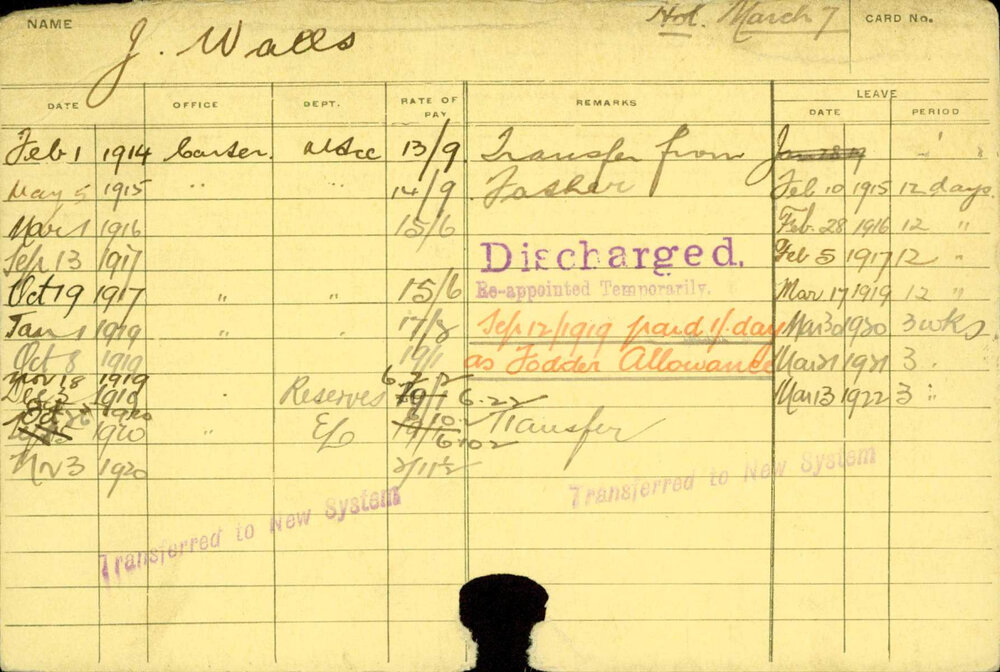 NAME J. Walls Hol. March 7 CARD No.
DATE OFFICE DEPT. RATE OF PAY REMARKS LEAVE
DATE PERIOD
Feb 1 1914 Carter. 13/9 Transfer from
May 5 1915 " " 14/9 Father Feb 10 1915 12 days.
Mar 1 1916 15/6 Feb. 28 1916 12 "
Sep 13 1917 Discharged. Feb 5 1917 12 "
Oct 19 1917 " " 15/6 Re-appointed Temporarily. Mar 17 1919 12 "
Jan 1 1919 " " 17/ Sep 12/1919 paid 1/- day Mar 30 1920 3 wks.
Oct 8 1919 19/1 as Fodder Allowance Mar 21 1921 3 "
Nov 18 1919
Dec 3 1919 Reserves 19/1 6.22 Mar 13 1922 3 "
1920 " Transfer
Nov 3 1920
Transferred to New System
Transferred to New System